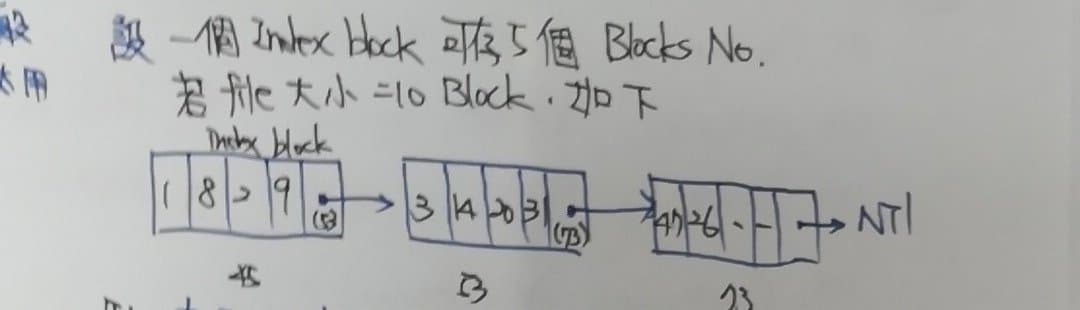 般 設 一個 Index block 可存 5 個 Blocks No.
太用 若 file 大小 = 10 Block. 如下
Index block
1 8 2 9 (53) → 3 14 20 31 (73) → 47 26 - - → Nil
45 53 73